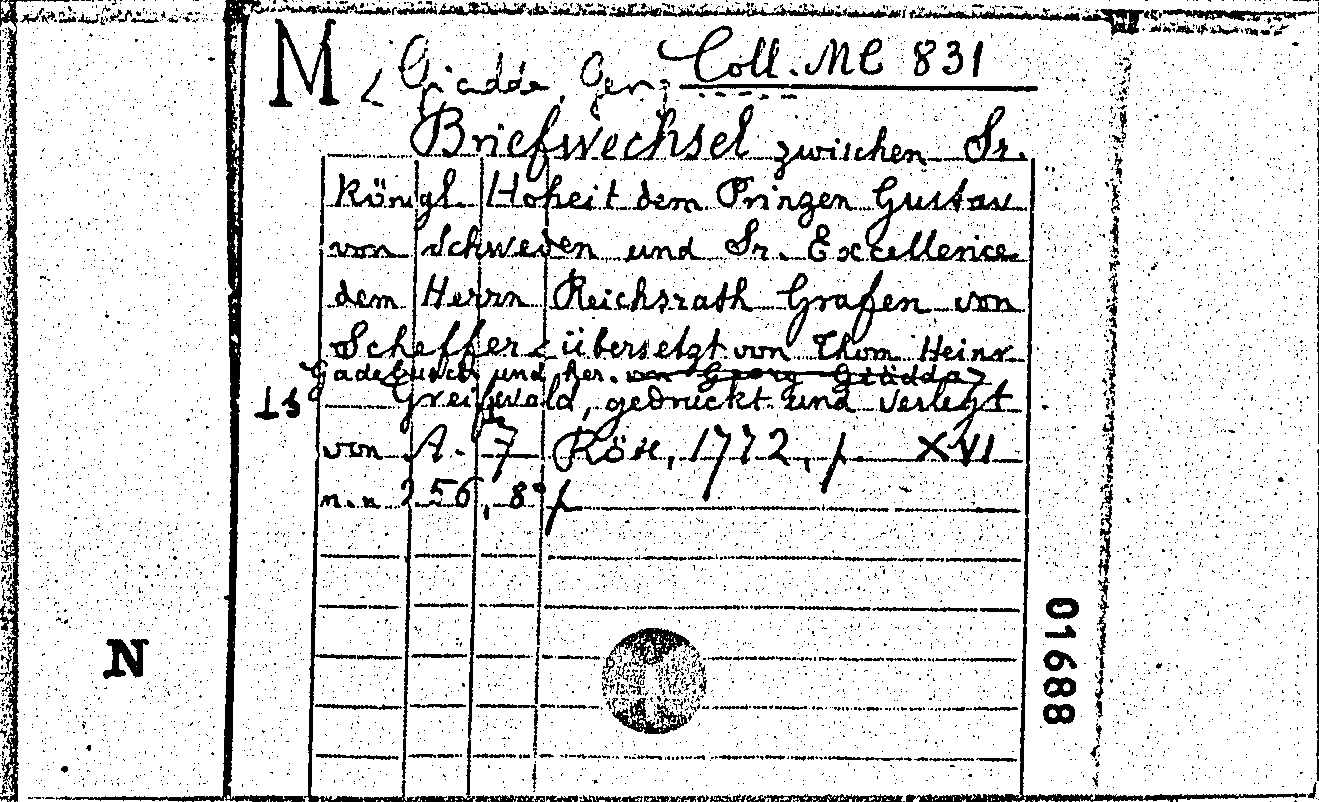 M < Gjadde, Georg Coll. MC 831
Briefwechsel zwischen Sr.
Königl. Hoheit dem Prinzen Gustav
von Schweden und Sr. Excellence
dem Herrn Reichsrath Grafen von
Scheffer < übersetzt von Thom Heinr
Gadebusch und her. von Georg Gjädda>
Greifswald, gedruckt und verlegt
von A. F Röse, 1772, p. XVI
u. 256, 8° p
N
01688